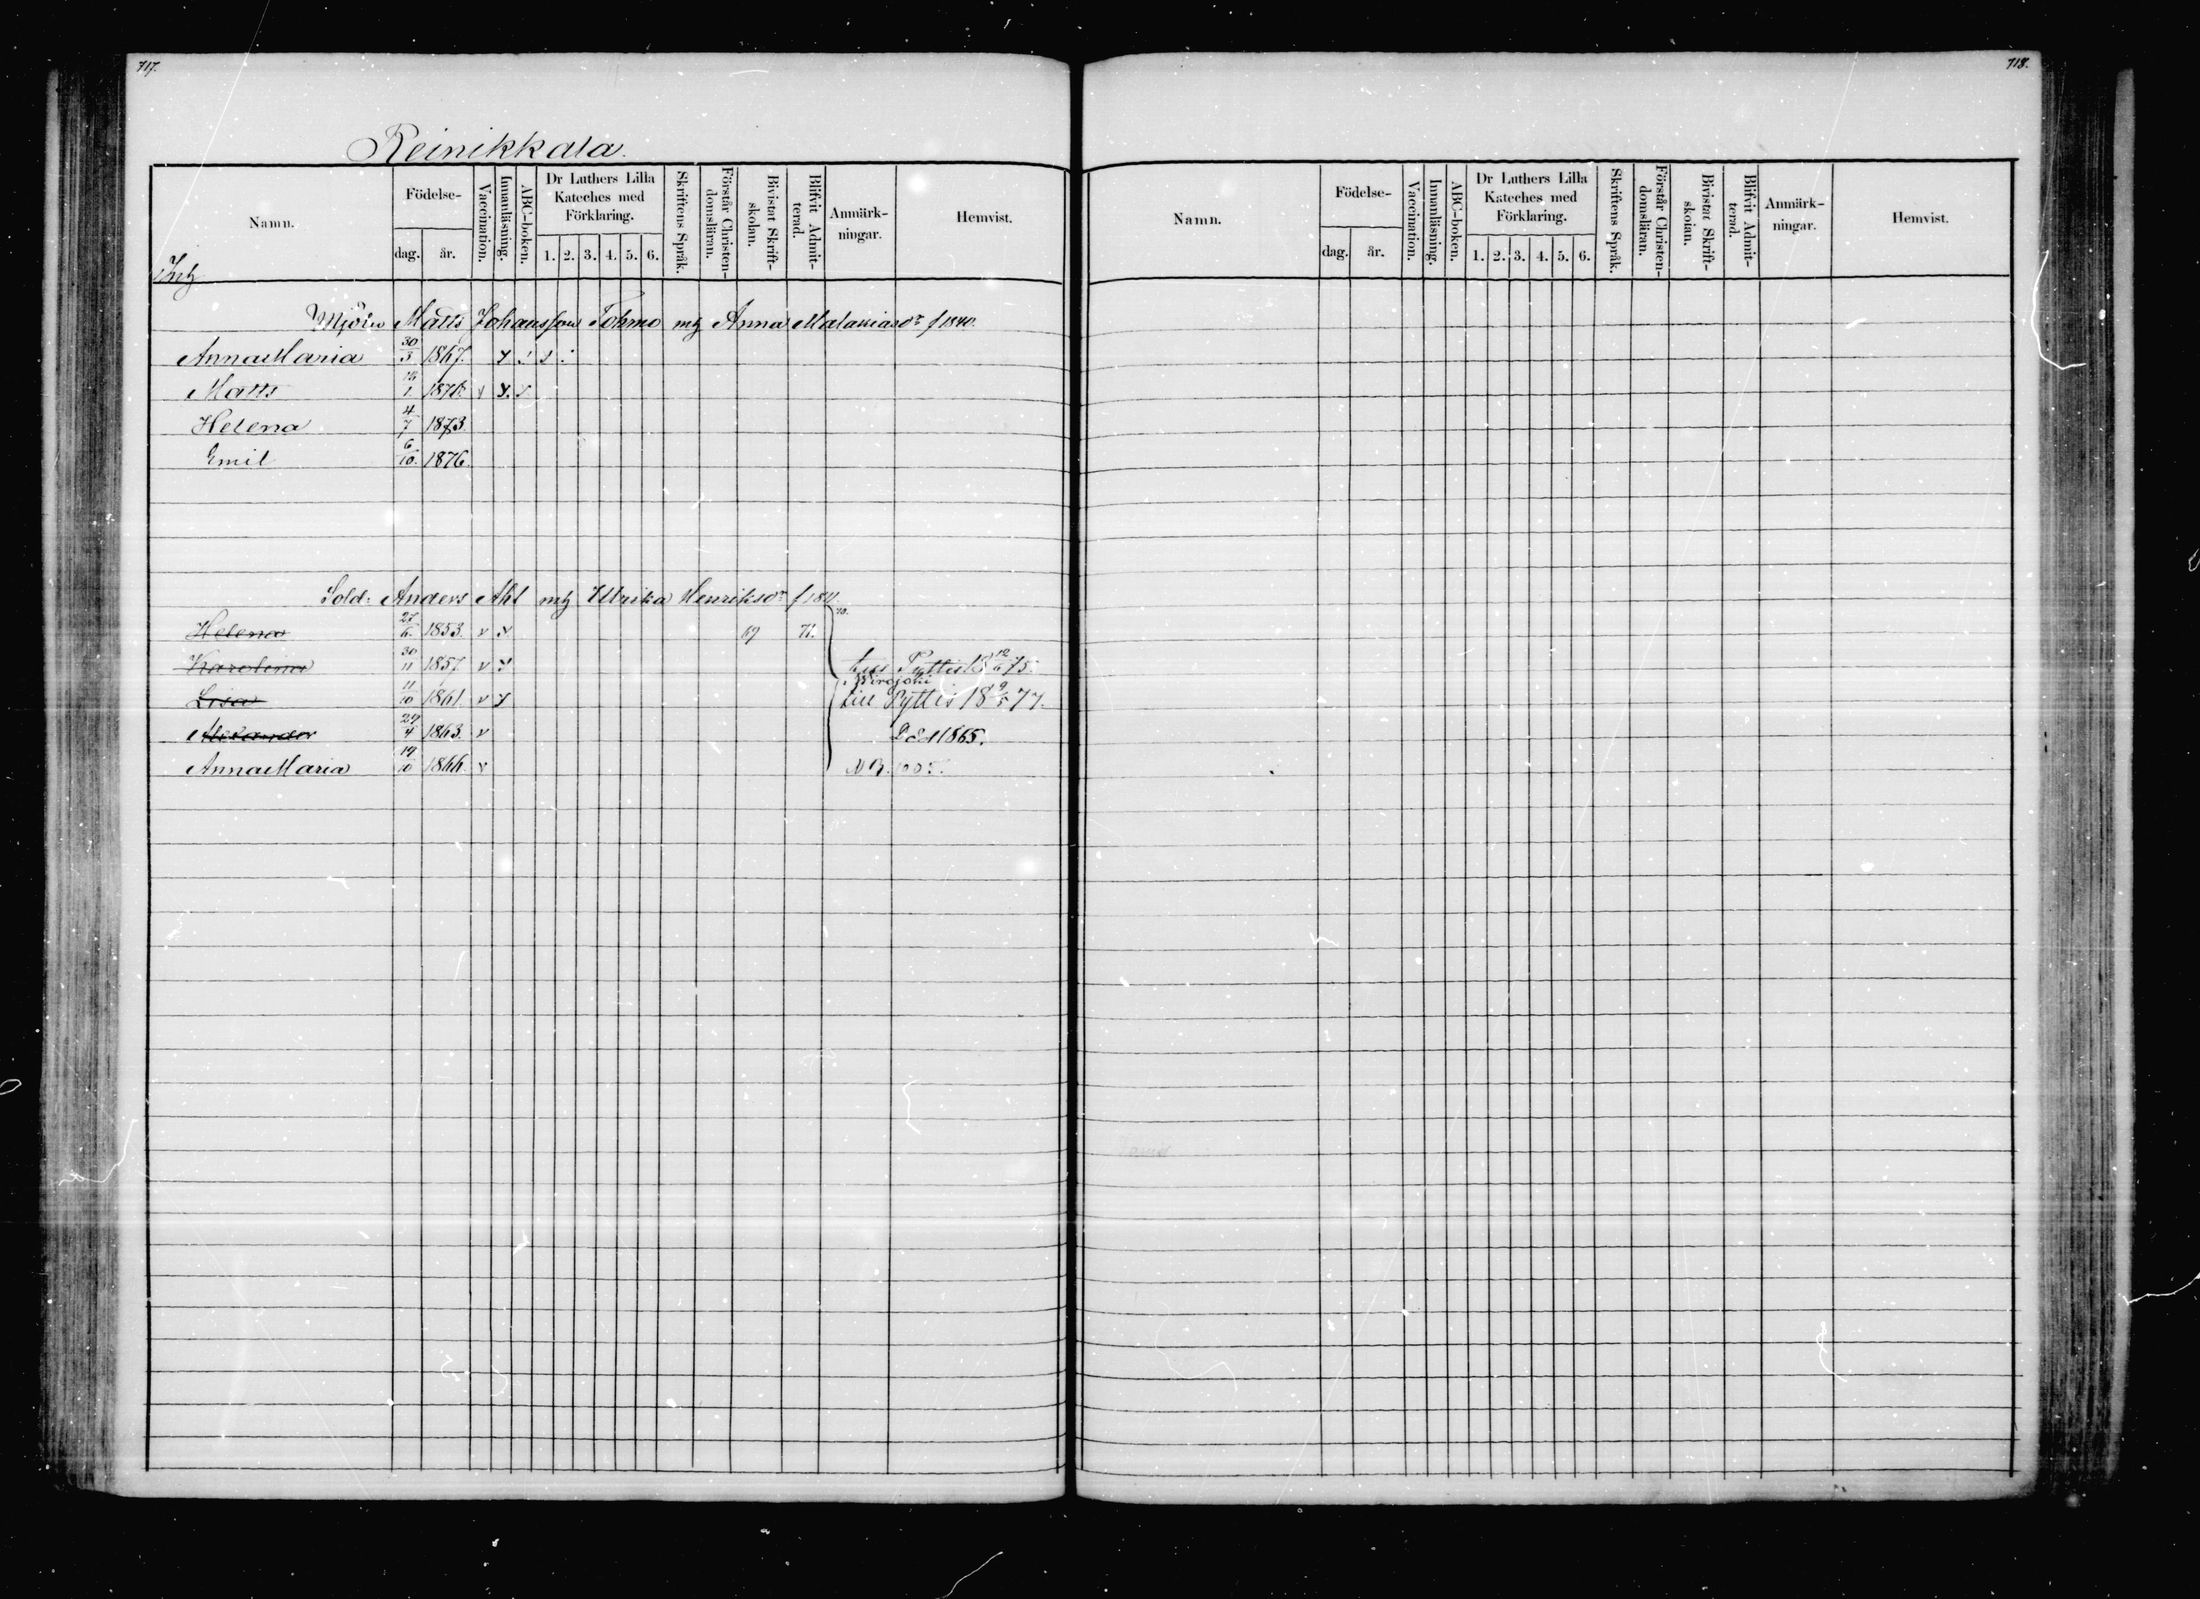 717.
Reinikkala.
Namn.
Födelse-
dag. år.
Vaccination.
Innanläsning.
ABC-boken.
Dr Luthers Lilla Kateches med Förklaring.
1. 2. 3. 4. 5. 6.
Skriftens Språk.
Förstår Christendomsläran.
Bivistat Skriftskolan.
Blifvit Admitterad.
Anmärkningar.
Hemvist.
Matts Johansson Tohmo mg Anna Malakiasdr f 1840.
Anna Maria 30/3 1867.
Matts 1 1870. v
Helena 4/7 1873
Emil 6/10. 1876.
Sold: Anders Ahl mg Ulrika Henriksdr
Helena 27/6 1853. v 69 71.
Karolina 30/11 1857. v till Pyttis 18 12/6 75.
Wirojoki
Lisa 11/10 1861. v till Pyttis 18 9/5 77.
Alexander 29/4 1863. v 1865.
Anna Maria 19/10 1866. v
718.
Namn.
Födelse-
dag. år.
Vaccination.
Innanläsning.
ABC-boken.
Dr Luthers Lilla Kateches med Förklaring.
1. 2. 3. 4. 5. 6.
Skriftens Språk.
Förstår Christendomsläran.
Bivistat Skriftskolan.
Blifvit Admitterad.
Anmärkningar.
Hemvist.